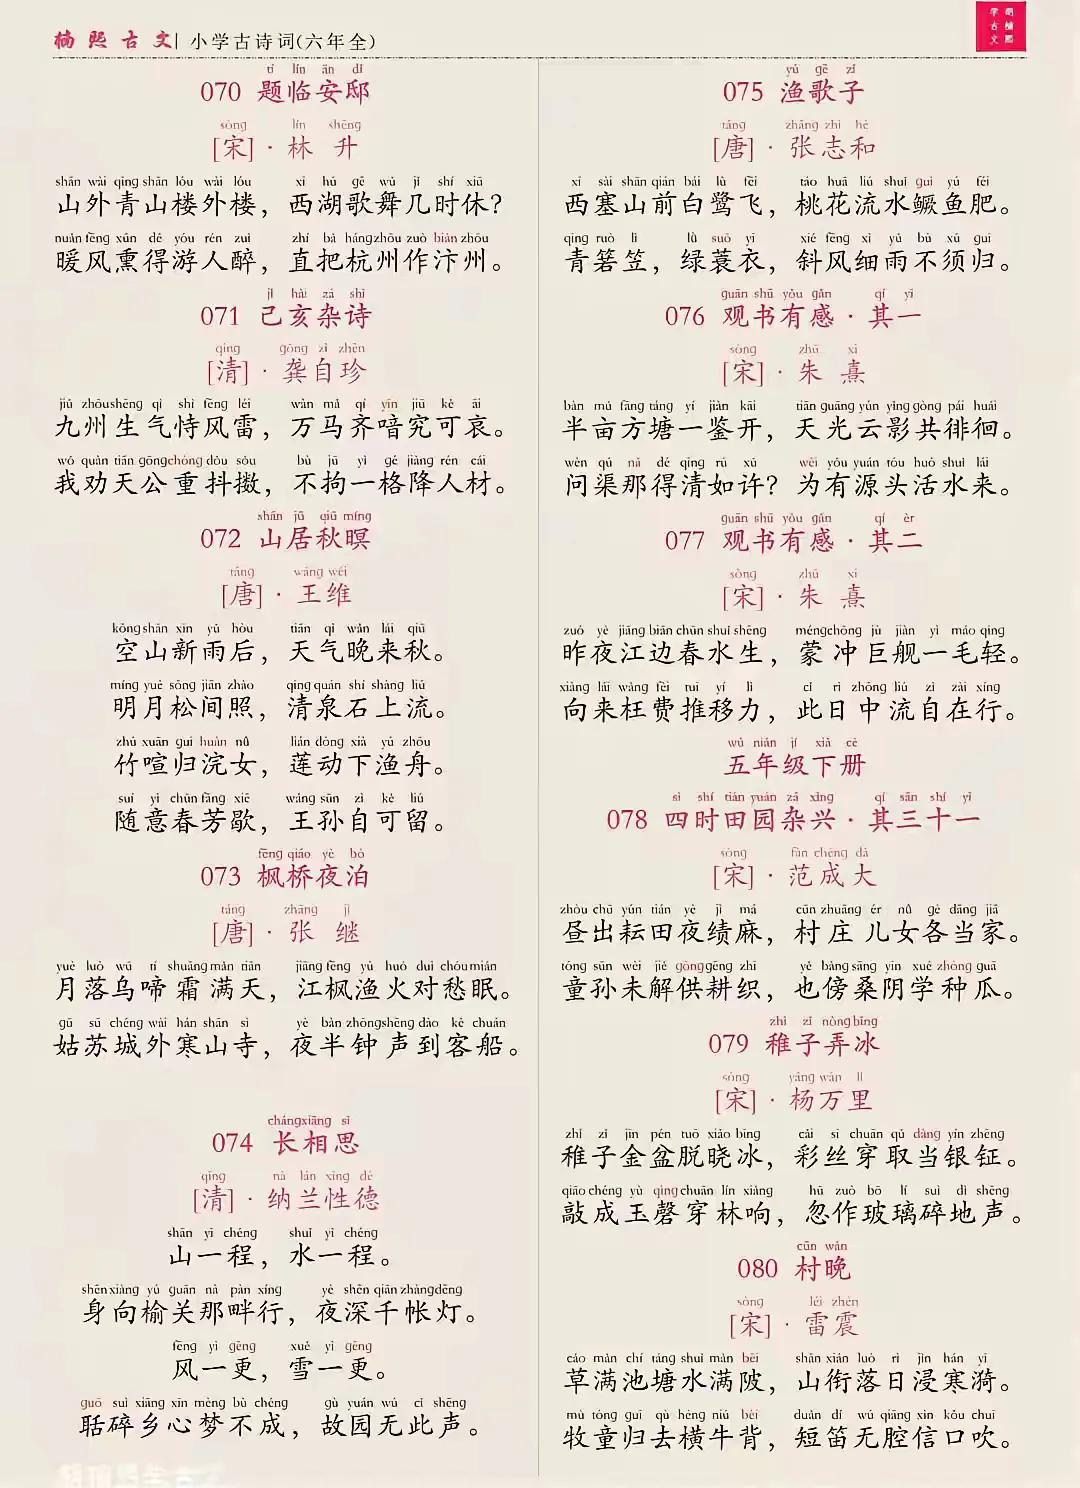 楠熙古文| 小学古诗词(六年全)
胡楠熙
学古文
tí lín ān dǐ
070 题临安邸
sòng lín shēng
[宋] · 林 升
shān wài qīng shān lóu wài lóu xī hú gē wǔ jǐ shí xiū
山外青山楼外楼，西湖歌舞几时休?
nuǎn fēng xūn dé yóu rén zuì zhí bǎ háng zhōu zuò biàn zhōu
暖风熏得游人醉，直把杭州作汴州。
jǐ hài zá shī
071 己亥杂诗
qīng gōng zì zhēn
[清] · 龚自珍
jiǔ zhōu shēng qì shì fēng léi wàn mǎ qí yīn jiū kě āi
九州生气恃风雷，万马齐喑究可哀。
wǒ quàn tiān gōng chóng dǒu sǒu bù jū yì gé jiàng rén cái
我劝天公重抖擞，不拘一格降人材。
shān jū qiū míng
072 山居秋暝
táng wáng wéi
[唐] · 王维
kōng shān xīn yǔ hòu tiān qì wǎn lái qiū
空山新雨后，天气晚来秋。
míng yuè sōng jiān zhào qīng quán shí shàng liú
明月松间照，清泉石上流。
zhú xuān guī huàn nǚ lián dòng xià yú zhōu
竹喧归浣女，莲动下渔舟。
suí yì chūn fāng xiē wáng sūn zì kě liú
随意春芳歇，王孙自可留。
fēng qiáo yè bó
073 枫桥夜泊
táng zhāng jì
[唐] · 张 继
yuè luò wū tí shuāng mǎn tiān jiāng fēng yú huǒ duì chóu mián
月落乌啼霜满天，江枫渔火对愁眠。
gū sū chéng wài hán shān sì yè bàn zhōng shēng dào kè chuán
姑苏城外寒山寺，夜半钟声到客船。
cháng xiāng sī
074 长相思
qīng nà lán xìng dé
[清] · 纳兰性德
shān yì chéng shuǐ yì chéng
山一程，水一程。
shēn xiàng yú guān nà pàn xíng yè shēn qiān zhàng dēng
身向榆关那畔行，夜深千帐灯。
fēng yì gēng xuě yì gēng
风一更，雪一更。
guō suì xiāng xīn mèng bù chéng gù yuán wú cǐ shēng
聒碎乡心梦不成，故园无此声。
yú gē zǐ
075 渔歌子
táng zhāng zhì hé
[唐] · 张志和
xī sài shān qián bái lù fēi táo huā liú shuǐ guì yú féi
西塞山前白鹭飞，桃花流水鳜鱼肥。
qīng ruò lì lǜ suō yī xié fēng xì yǔ bù xū guī
青箬笠，绿蓑衣，斜风细雨不须归。
guān shū yǒu gǎn qí yī
076 观书有感 · 其一
sòng zhū xī
[宋] · 朱 熹
bàn mǔ fāng táng yí jiàn kāi tiān guāng yún yǐng gòng pái huái
半亩方塘一鉴开，天光云影共徘徊。
wèn qú nǎ dé qīng rú xǔ wèi yǒu yuán tóu huó shuǐ lái
问渠那得清如许?为有源头活水来。
guān shū yǒu gǎn qí èr
077 观书有感 · 其二
sòng zhū xī
[宋] · 朱 熹
zuó yè jiāng biān chūn shuǐ shēng méng chōng jù jiàn yì máo qīng
昨夜江边春水生，蒙冲巨舰一毛轻。
xiàng lái wǎng fèi tuī yí lì cǐ rì zhōng liú zì zài xíng
向来枉费推移力，此日中流自在行。
wǔ nián jí xià cè
五年级下册
sì shí tián yuán zá xìng qí sān shí yī
078 四时田园杂兴 · 其三十一
sòng fàn chéng dà
[宋] · 范成大
zhòu chū yún tián yè jì má cūn zhuāng ér nǚ gè dāng jiā
昼出耘田夜绩麻，村庄儿女各当家。
tóng sūn wèi jiě gòng gēng zhī yě bàng sāng yīn xué zhòng guā
童孙未解供耕织，也傍桑阴学种瓜。
zhì zǐ nòng bīng
079 稚子弄冰
sòng yáng wàn lǐ
[宋] · 杨万里
zhì zǐ jīn pén tuō xiǎo bīng cǎi sī chuān qǔ dàng yín zhēng
稚子金盆脱晓冰，彩丝穿取当银钲。
qiāo chéng yù qìng chuān lín xiǎng hū zuò bō lí suì dì shēng
敲成玉磬穿林响，忽作玻璃碎地声。
cūn wǎn
080 村晚
sòng léi zhèn
[宋] · 雷震
cǎo mǎn chí táng shuǐ mǎn bēi shān xián luò rì jìn hán yī
草满池塘水满陂，山衔落日浸寒漪。
mù tóng guī qù héng niú bèi duǎn dí wú qiāng xìn kǒu chuī
牧童归去横牛背，短笛无腔信口吹。